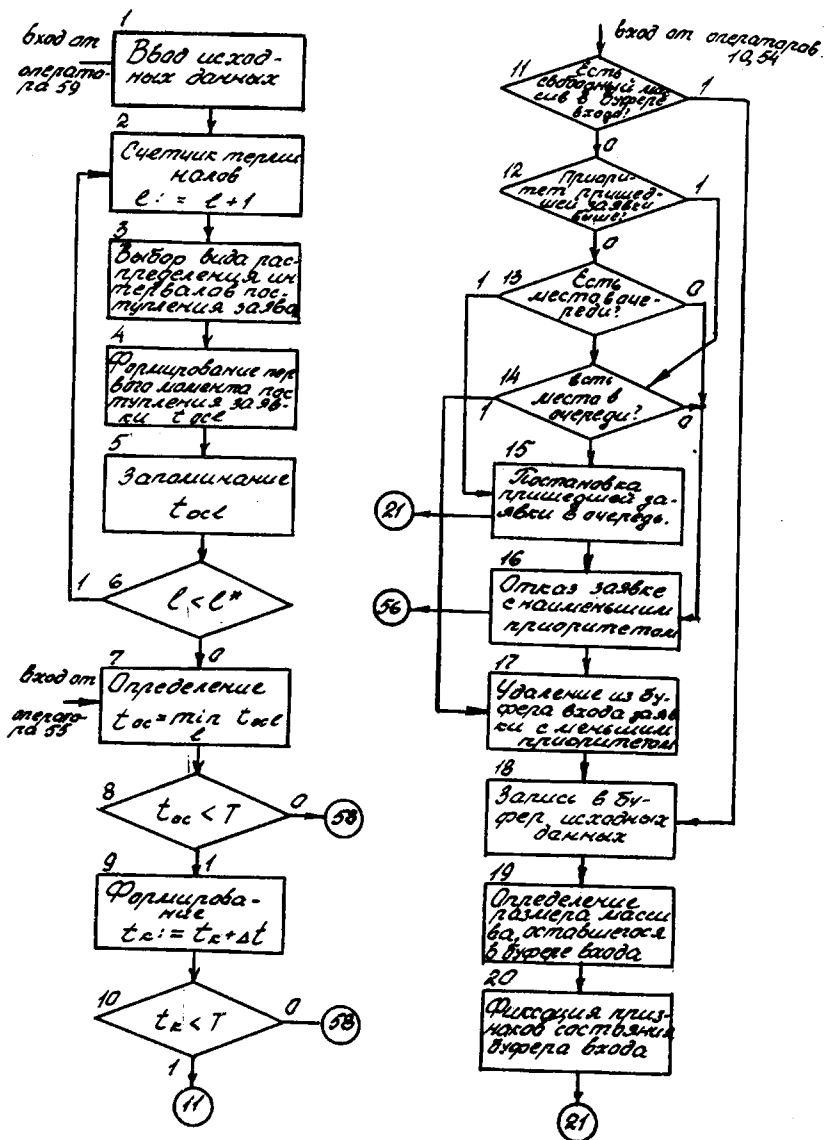 1
вход от
операто-
ра 59
Ввод исход-
ных данных
2
Счетчик терми
налов
l := l+1
3
Выбор вида рас-
пределения ин-
тервалов пос-
тупления заяво
4
Формирование пер
вого момента пос-
тупления заяв-
ки t осl
5
Запоминание
t осl
6
1
l < l*
0
7
вход от
операто-
ра 55
Определение
t ос = min t осl
l
8
t ос < T
0
58
1
9
Формирова-
ние
t к := t к + Δt
10
t к < T
0
58
1
11
вход от операторов
10, 54
11
Есть
свободный мас
сив в буфере
входа?
1
0
12
Приори-
тет пришед-
шей заявки
выше?
1
0
13
1
Есть
места в оче-
реди?
0
14
1
Есть
место в
очереди?
0
15
Постановка
пришедшей за-
явки в очередь.
21
16
Отказ заявке
с наименьшим
приоритетом
56
17
Удаление из бу-
фера входа заяв
ки с меньшим
приоритетом
18
Запись в бу-
фер исходных
данных
19
Определение
размера масси
ва, оставшегося
в буфере входа
20
Фиксация приз-
наков состояния
буфера входа
21